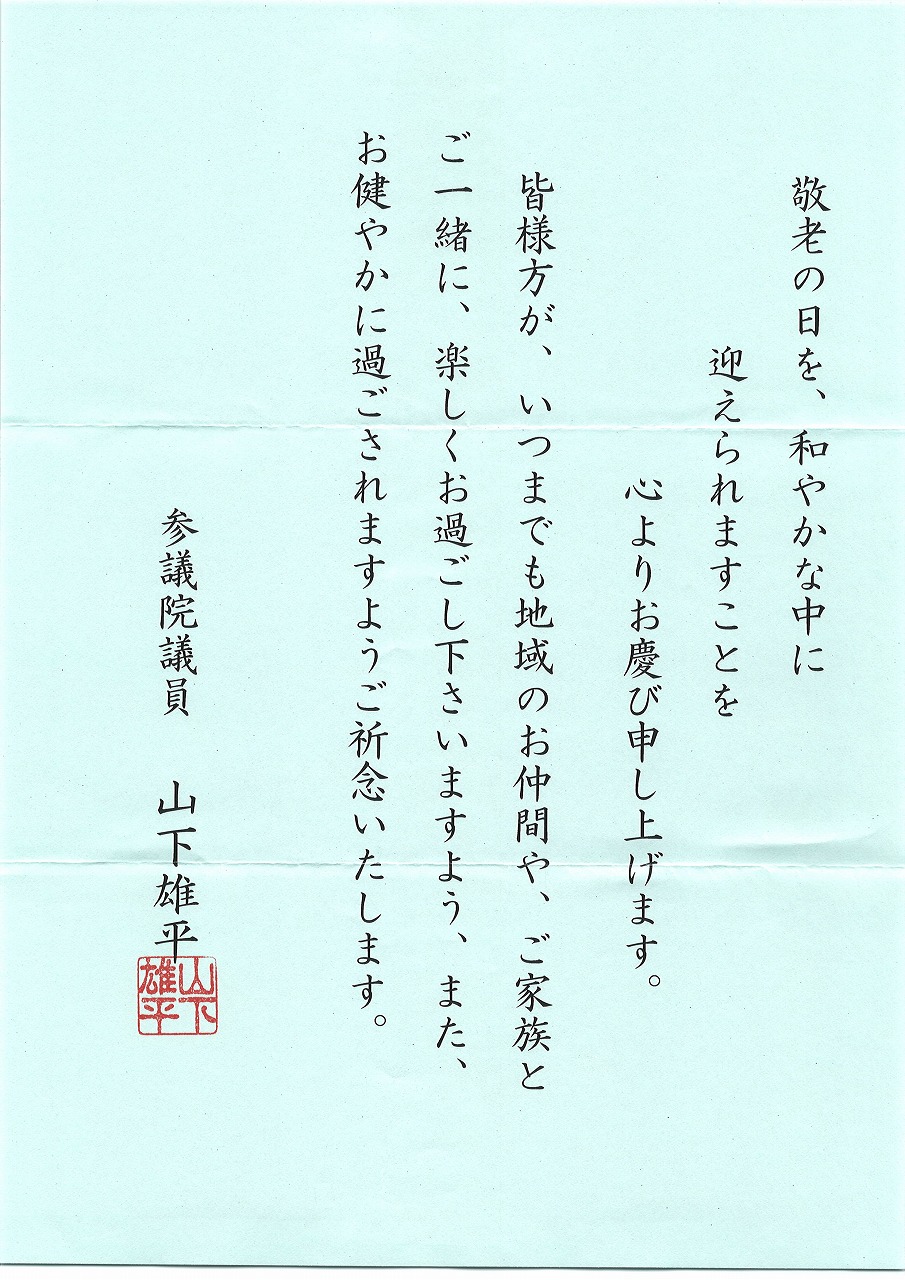 敬老の日を、和やかな中に
迎えられますことを
心よりお慶び申し上げます。
皆様方が、いつまでも地域のお仲間や、ご家族と
ご一緒に、楽しくお過ごし下さいますよう、また、
お健やかに過ごされますようご祈念いたします。
参議院議員 山下雄平
山下
雄平